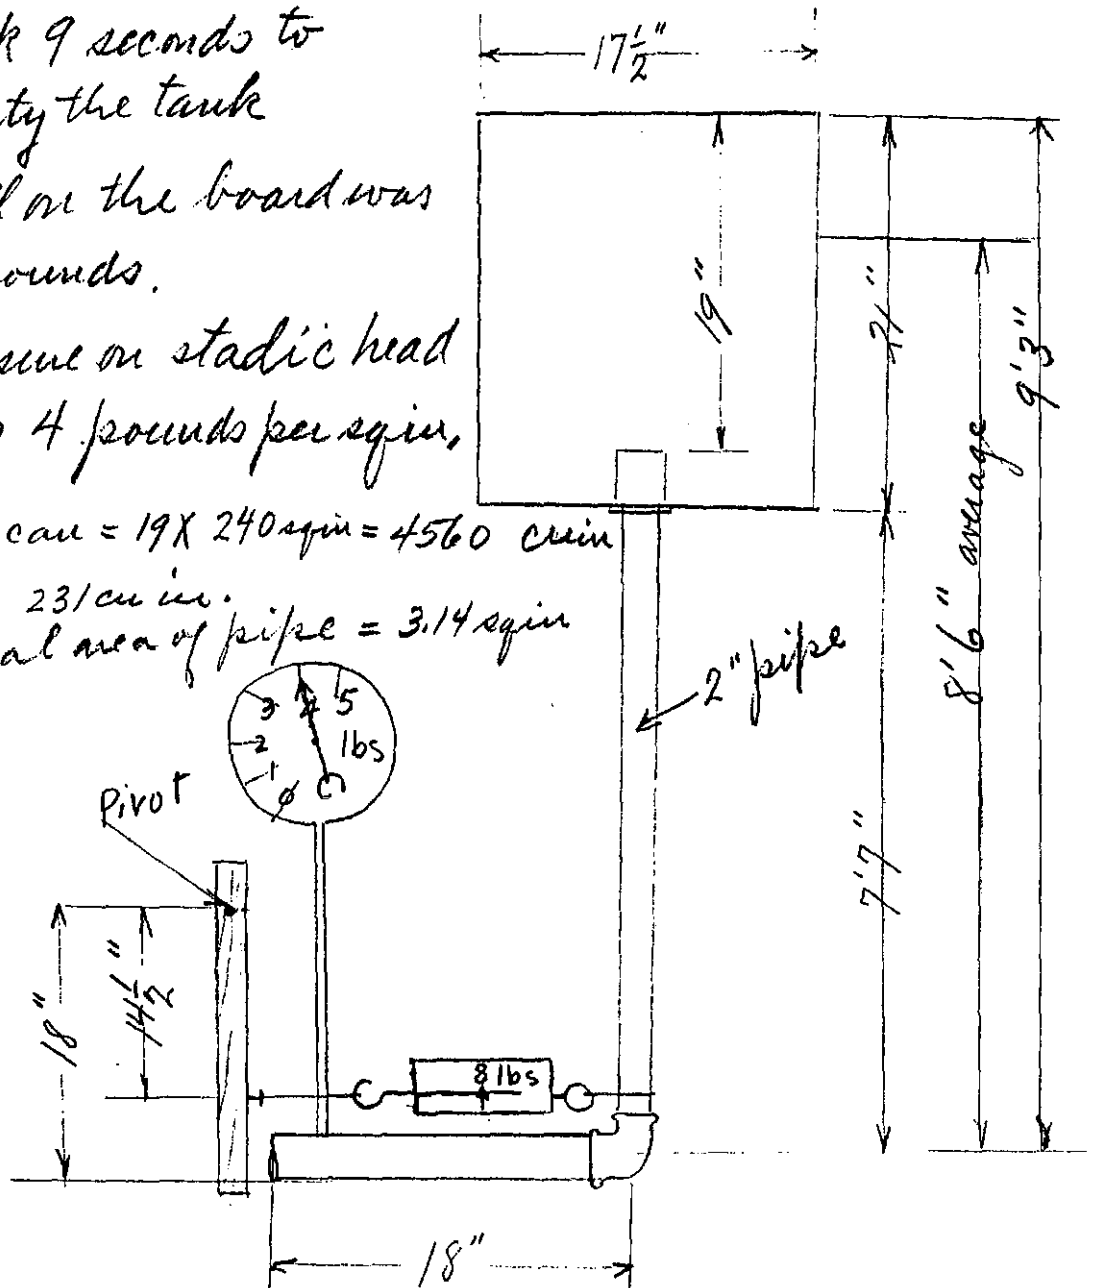 k 9 seconds to
ty the tank
d on the board was
ounds.
sure on stadic head
o 4 pounds per sq in.
can = 19 X 240 sq in = 4560 cu in
231 cu in.
al area of pipe = 3.14 sq in
17 1/2"
19"
21"
9' 3"
8' 6" average
7' 7"
2" pipe
3 4 5
2 lbs
1
0
Pivot
18"
14 1/2"
8 lbs
18"